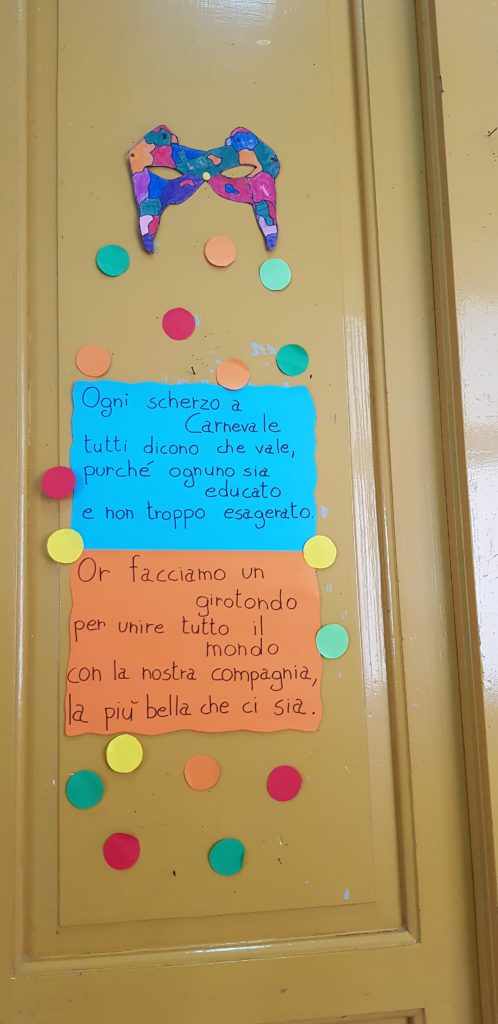 Ogni scherzo a
Carnevale
tutti dicono che vale,
purché ognuno sia
educato
e non troppo esagerato.
Or facciamo un
girotondo
per unire tutto il
mondo
con la nostra compagnia,
la più bella che ci sia.